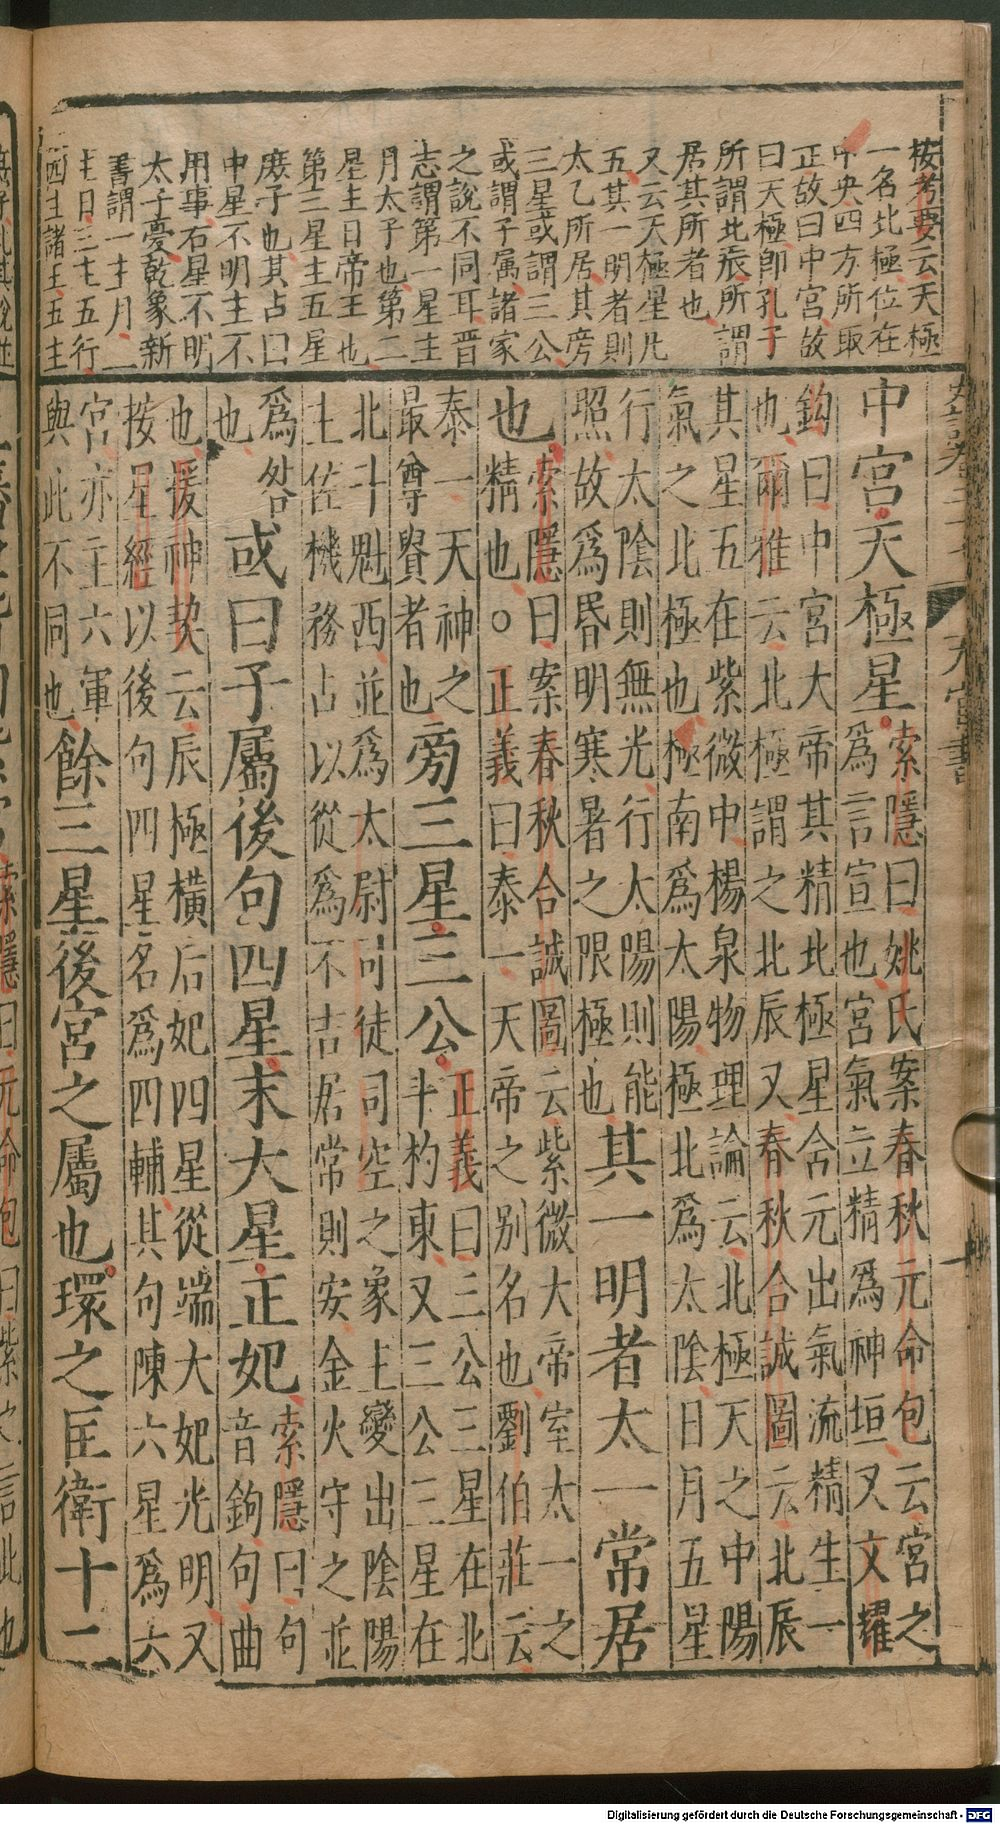 按考要云天極
一名北極位在
中央四方所取
正故曰中宮故
曰天極即孔子
所謂北辰所謂
居其所者也
又云天極星凡
五其一明者則
太乙所居其旁
三星或謂三公
或謂子属諸家
之說不同耳晋
志謂第一星主
月太子也第二
星主日帝王也
第三星主五星
庶子也其占曰
中星不明主不
用事右星不明
太子憂乾象新
書謂一主月二
主日三主五行
四主諸王五主
天官書
一
中宮天極星
索隱曰姚氏案春秋元命包云宮之
爲言宣也宮氣立精爲神垣又文耀
鈎曰中宮大帝其精北極星含元出氣流精生一
也爾雅云北極謂之北辰又春秋合誠圖云北辰
其星五在紫微中楊泉物理論云北極天之中陽
氣之北極也極南爲太陽極北爲太陰日月五星
行太陰則無光行太陽則能
照故爲昏明寒暑之限極也
其一明者太一常居
也
索隱曰案春秋合誠圖云紫微大帝室太一之
精也○正義曰泰一天帝之別名也劉伯莊云
泰一天神之
最尊貴者也
旁三星三公
正義曰三公三星在北
斗杓東又三公三星在
北斗魁西並爲太尉司徒司空之象主變出陰陽
主佐機務占以從爲不吉居常則安金火守之並
爲咎
也
或曰子屬後句四星末大星正妃
索隱曰句
音鉤句曲
也援神契云辰極橫后妃四星從端大妃光明又
按星經以後句四星名爲四輔其句陳六星爲六
宮亦主六軍
與此不同也
餘三星後宮之屬也環之匡衛十二
索隱曰元命包曰紫之言此也
Digitalisierung gefördert durch die Deutsche Forschungsgemeinschaft - DFG